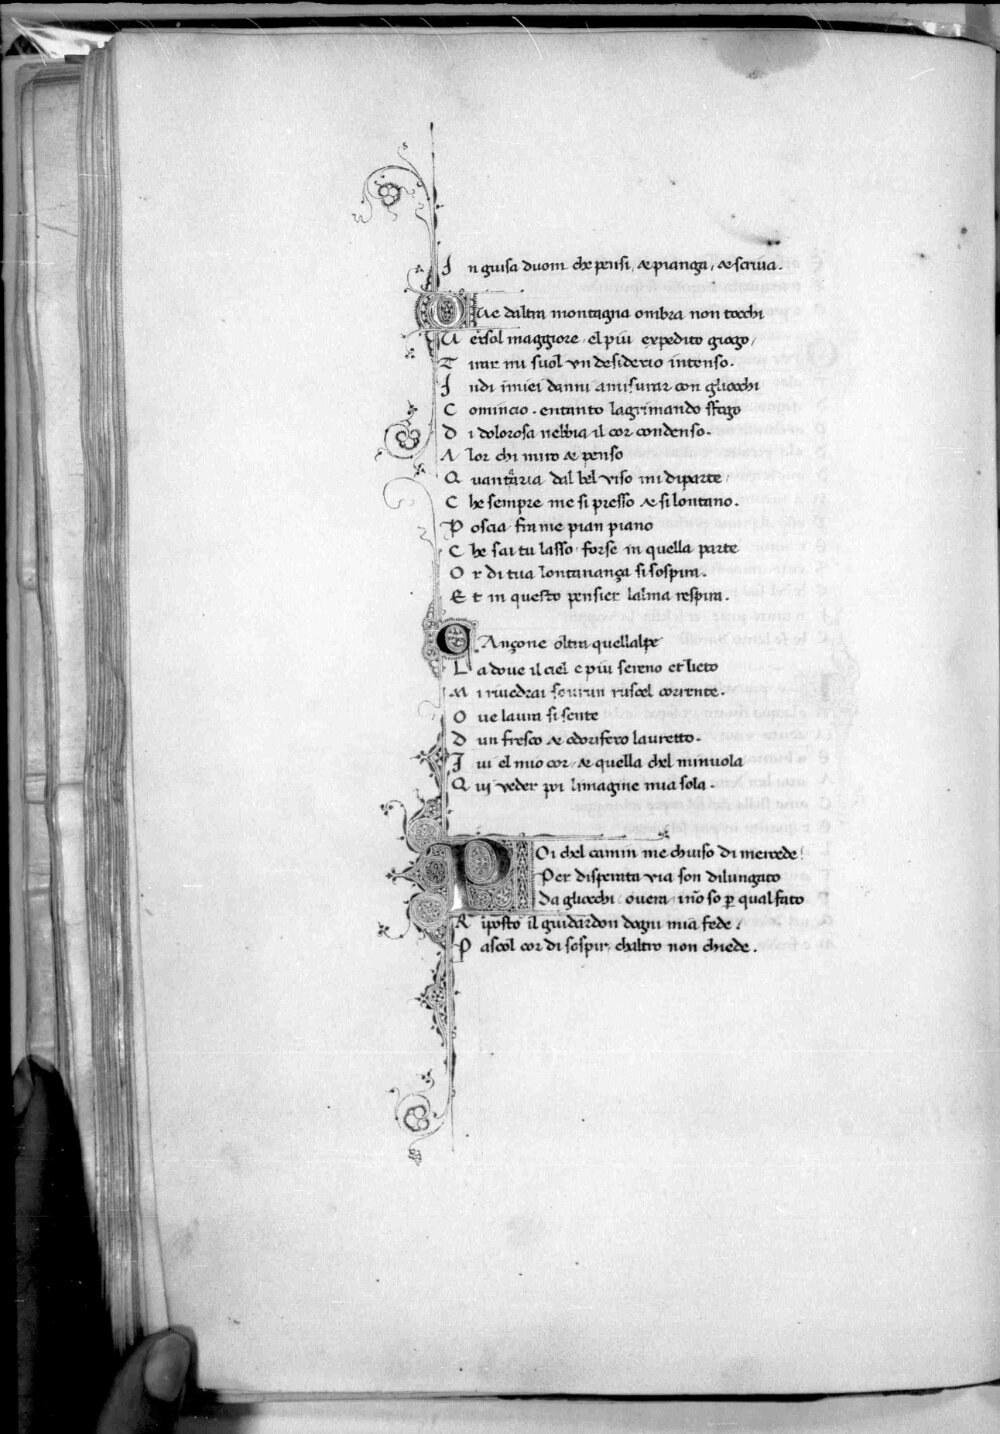 In guisa duom che pensi, & pianga, & scriva.
OUe daltra montagna ombra non tocchi
Uersol maggiore, el più expedito giogo,
Tirar mi suol vn desiderio intenso.
Indi imiei danni amisurar con gliocchi
Comincio. entanto lagrimando sfogo
Di dolorosa nebbia il cor condenso.
Alor chi miro & penso
Quantaria dal bel viso mi diparte,
Che sempre me si presso & si lontano.
Poscia fra me pian piano
Che sai tu lasso, forse in quella parte
Or di tua lontanança si sospira.
Et in questo pensier lalma respira.
CAnçone oltra quellalpe
La doue il ciel e più sereno et lieto
Mi riuedrai sourun ruscel corrente.
Oue laura si sente
Dun fresco & odorifero lauretto.
Iui el mio cor, & quella chel minuola
Qui veder poi limagine mia sola.
POi chel camin me chiuso di mercede
Per disperata via son dilungato
Da gliocchi, ouera, inõ so p qual fato
Riposto il guidardon dogni mia fede.
Pascol cor di sospir, chaltro non chiede.